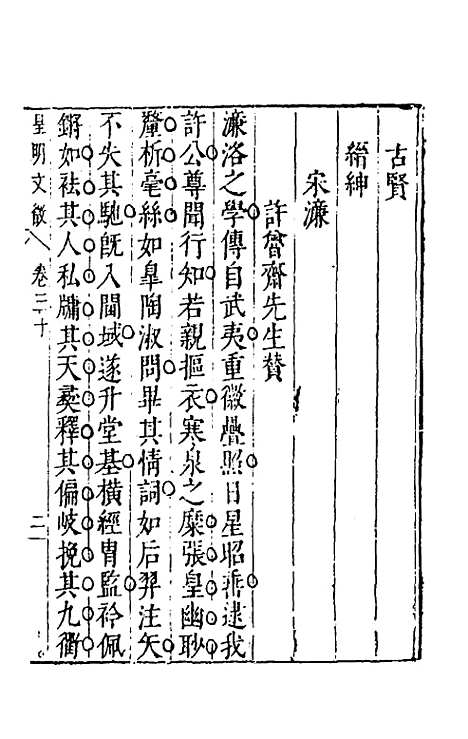 古賢
縉紳
宋濂
許魯齋先生贊
濂洛之學傳自武夷重徽疊照日星昭垂逮我
許公尊聞行知若親摳衣寒泉之糜張皇幽眇
釐析毫絲如臯陶淑問畢其情詞如后羿注矢
不失其馳旣入閫域遂升堂基橫經冑監衿佩
鏘如袪其人私牖其天彞釋其偏岐挽其九衢
皇明文徵 卷三十 二